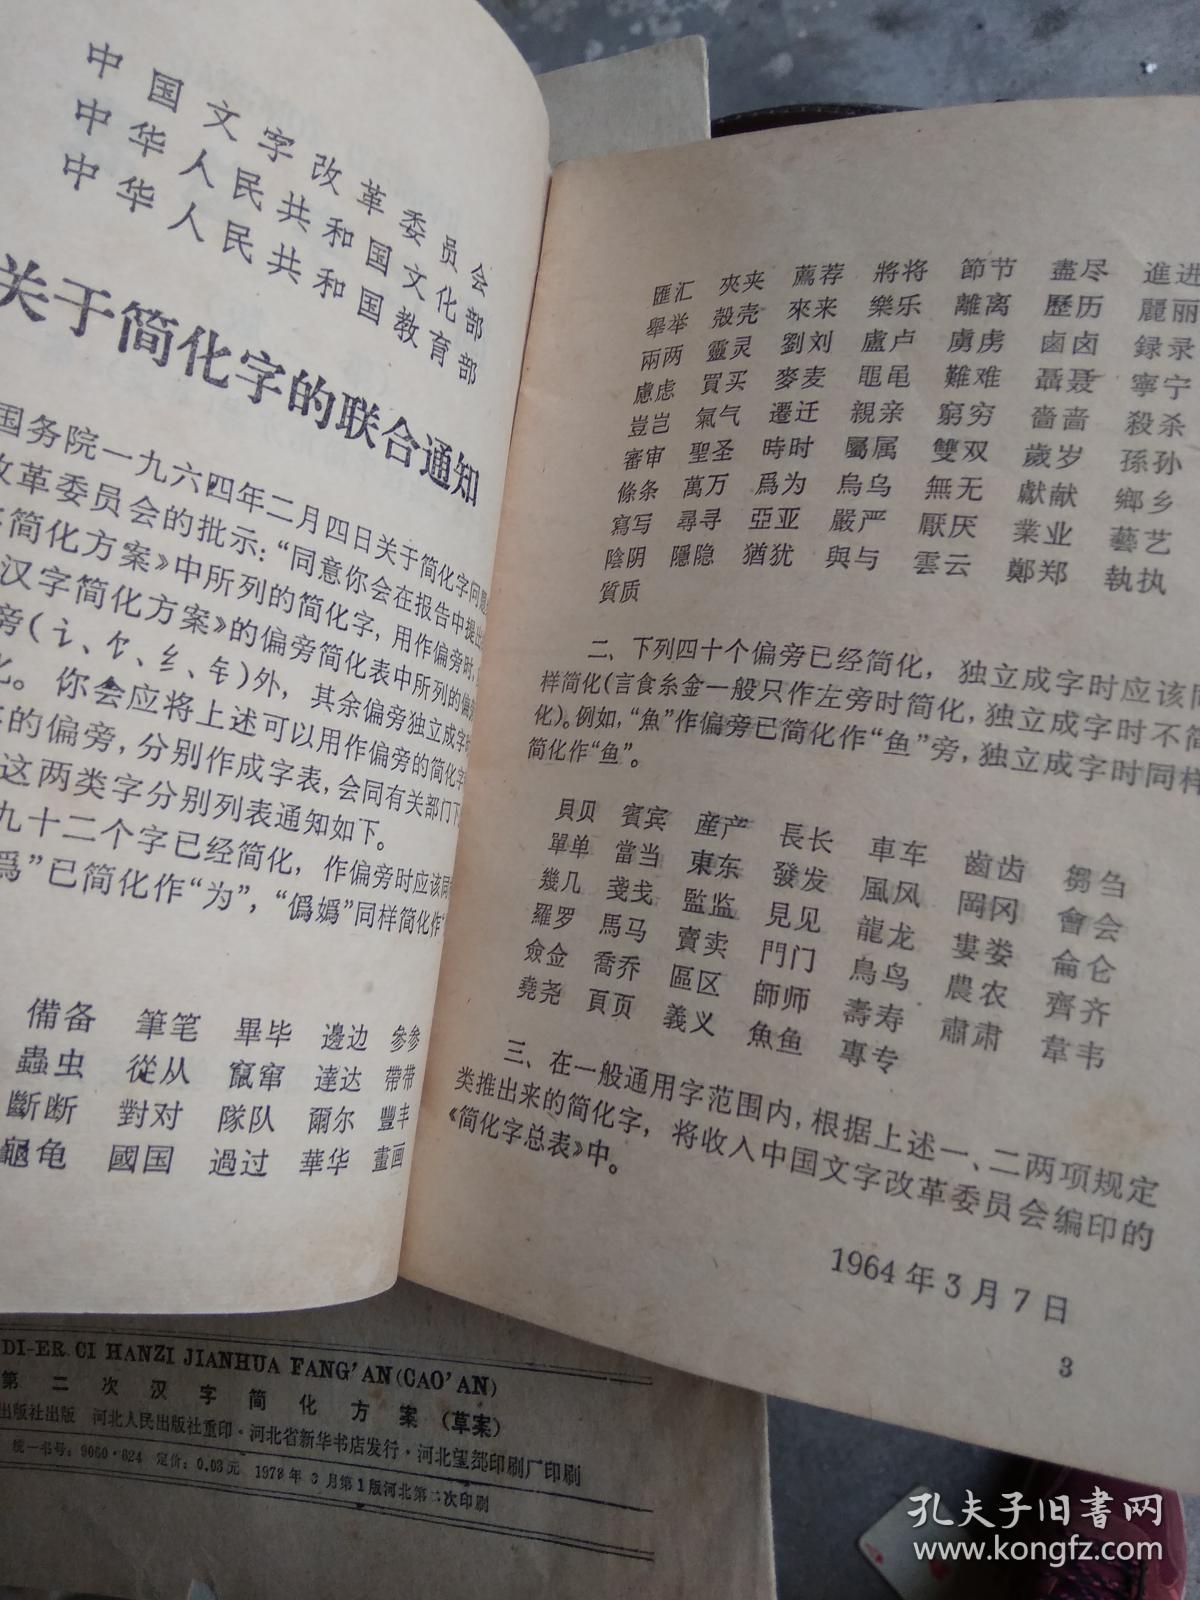 中国文字改革委员会
中华人民共和国文化部
中华人民共和国教育部
关于简化字的联合通知
国务院一九六四年二月四日关于简化字问题
改革委员会的批示:“同意你会在报告中提出
简化方案》中所列的简化字,用作偏旁时,
汉字简化方案》的偏旁简化表中所列的偏旁
旁(讠、饣、纟、钅)外,其余偏旁独立成字时
化。你会应将上述可以用作偏旁的简化字
的偏旁,分别作成字表,会同有关部门下
这两类字分别列表通知如下。
九十二个字已经简化,作偏旁时应该同
爲”已简化作“为”,“僞嬀”同样简化作
備备 筆笔 畢毕 邊边 參参
蟲虫 從从 竄窜 達达 帶带
斷断 對对 隊队 爾尔 豐丰
龜龟 國国 過过 華华 畫画
匯汇 夾夹 薦荐 將将 節节 盡尽 進进
舉举 殼壳 來来 樂乐 離离 歷历 麗丽
兩两 靈灵 劉刘 盧卢 虜虏 鹵卤 録录
慮虑 買买 麥麦 黽黾 難难 聶聂 寧宁
豈岂 氣气 遷迁 親亲 窮穷 嗇啬 殺杀
審审 聖圣 時时 屬属 雙双 歲岁 孫孙
條条 萬万 爲为 烏乌 無无 獻献 鄉乡
寫写 尋寻 亞亚 嚴严 厭厌 業业 藝艺
陰阴 隱隐 猶犹 與与 雲云 鄭郑 執执
質质
二、下列四十个偏旁已经简化,独立成字时应该同
样简化(言食糸金一般只作左旁时简化,独立成字时不简
化)。例如,“魚”作偏旁已简化作“鱼”旁,独立成字时同样
简化作“鱼”。
貝贝 賓宾 産产 長长 車车 齒齿 芻刍
單单 當当 東东 發发 風风 岡冈 會会
幾几 戔戋 監监 見见 龍龙 婁娄 侖仑
羅罗 馬马 賣卖 門门 鳥鸟 農农 齊齐
僉佥 喬乔 區区 師师 壽寿 肅肃 韋韦
堯尧 頁页 義义 魚鱼 專专
三、在一般通用字范围内,根据上述一、二两项规定
类推出来的简化字,将收入中国文字改革委员会编印的
《简化字总表》中。
1964年3月7日
3
DI-ER CI HANZI JIANHUA FANG'AN (CAO'AN)
第二次汉字简化方案(草案)
出版社出版 河北人民出版社重印·河北省新华书店发行·河北望都印刷厂印刷
统一书号:9060·824 定价:0.03元 1978年3月第1版河北第二次印刷
孔夫子旧书网
www.kongfz.com